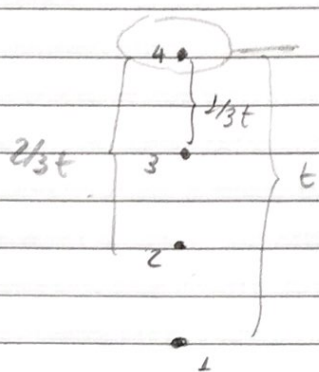 4
1/3t
2/3t
3
t
2
1